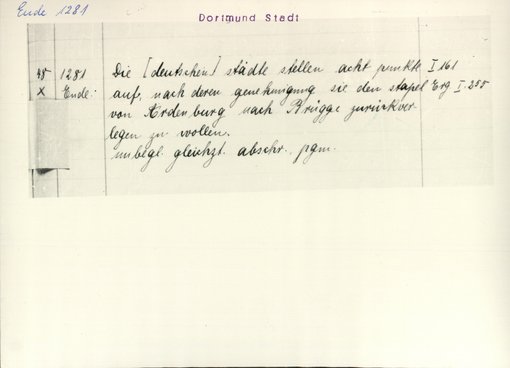 Ende 1281
Dortmund Stadt
48 1281 Die [deutschen] städte stellen acht punkte I 161
X Ende: auf, nach deren genehmigung sie den stapel Erg I 255
von Ardenburg nach Brügge zurückver-
legen zu wollen.
unbegl. gleichzt. abschr. pgm.